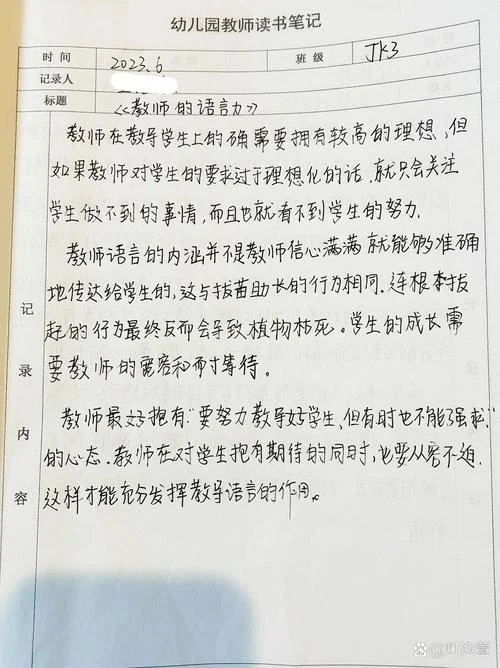 幼儿园教师读书笔记
时间 2023.6 班级 JK3
记录人
标题 《教师的语言力》
教师在教导学生上的确需要拥有较高的理想，但
如果教师对学生的要求过于理想化的话，就只会关注
学生做不到的事情，而且也就看不到学生的努力.
教师语言的内涵并不是教师信心满满就能够准确
地传达给学生的，这与拔苗助长的行为相同.连根拔
起的行为最终反而会导致植物枯死。学生的成长需
要教师的宽容和耐心等待。
教师最好抱有“要努力教导好学生，但有时也不能强求”
的心态.教师在对学生抱有期待的同时，也要从容不迫.
这样才能充分发挥教导语言的作用。
记录内容
@灯泡壹